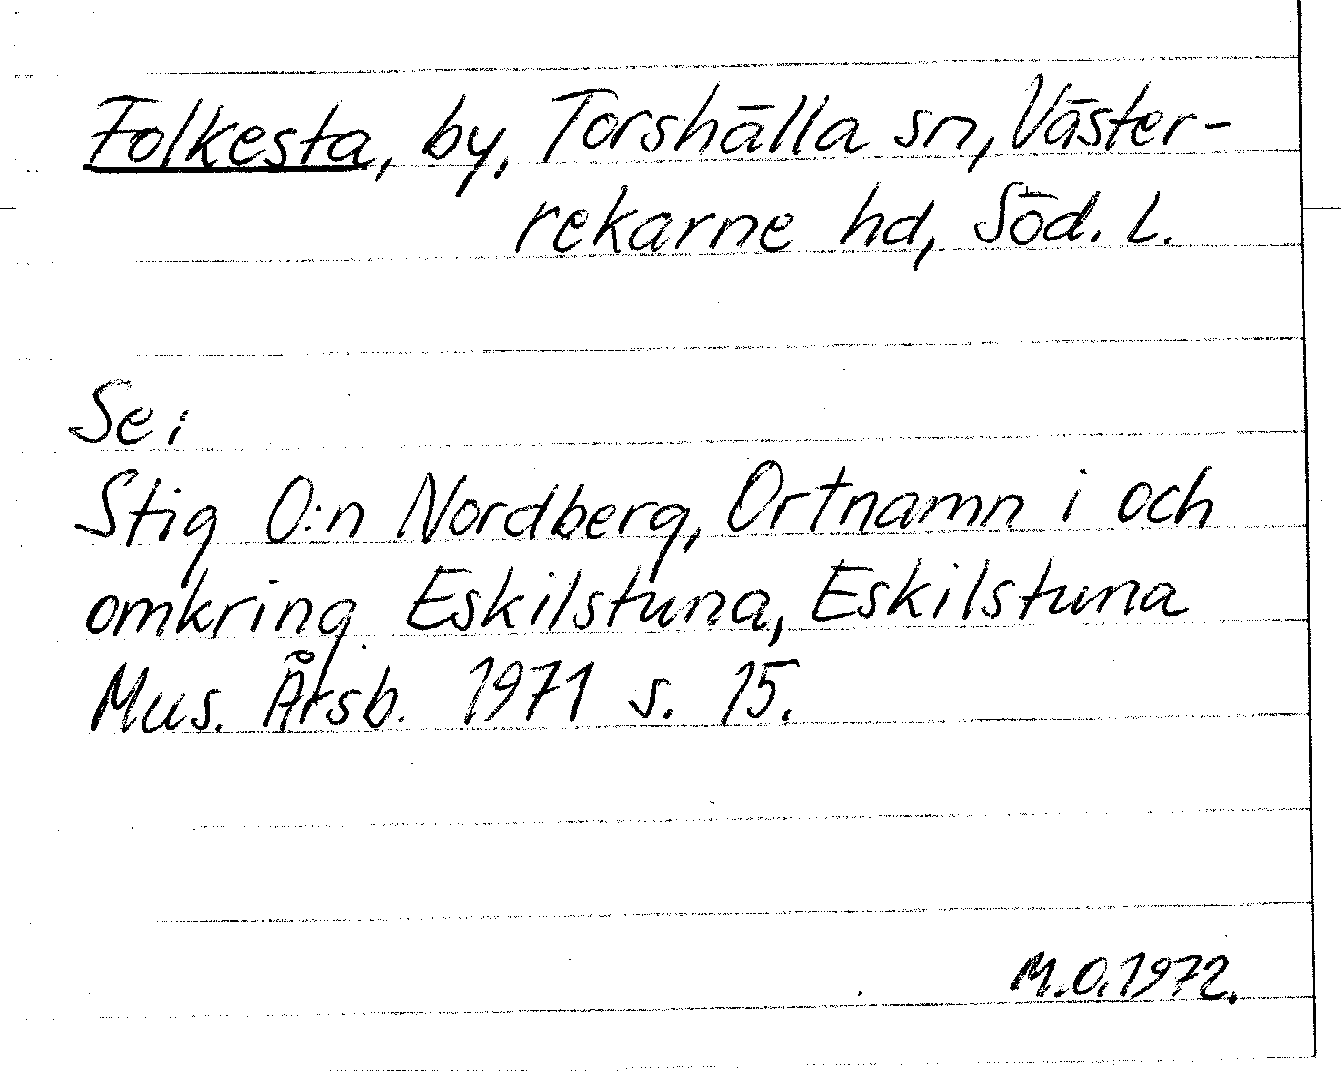 Folkesta, by, Torshälla sn, Väster-
rekarne hd, Söd. L.
Se:
Stig O:n Nordberg, Ortnamn i och
omkring Eskilstuna, Eskilstuna
Mus. Årsb. 1971 s. 15.
M.O. 1972.